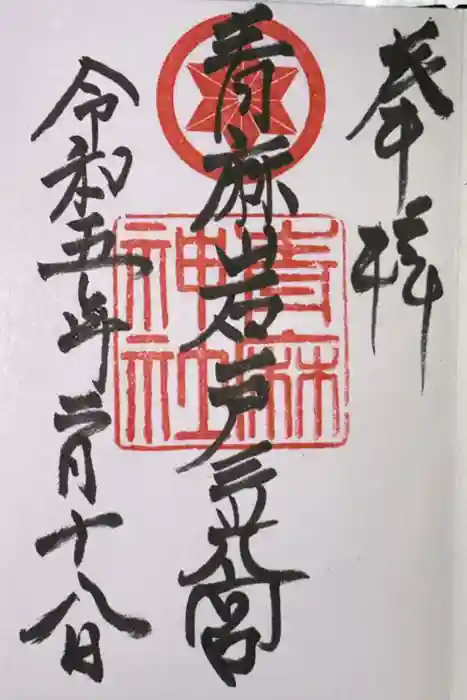 奉拝
青麻山岩戸三光宮
青麻神社
令和五年二月十八日